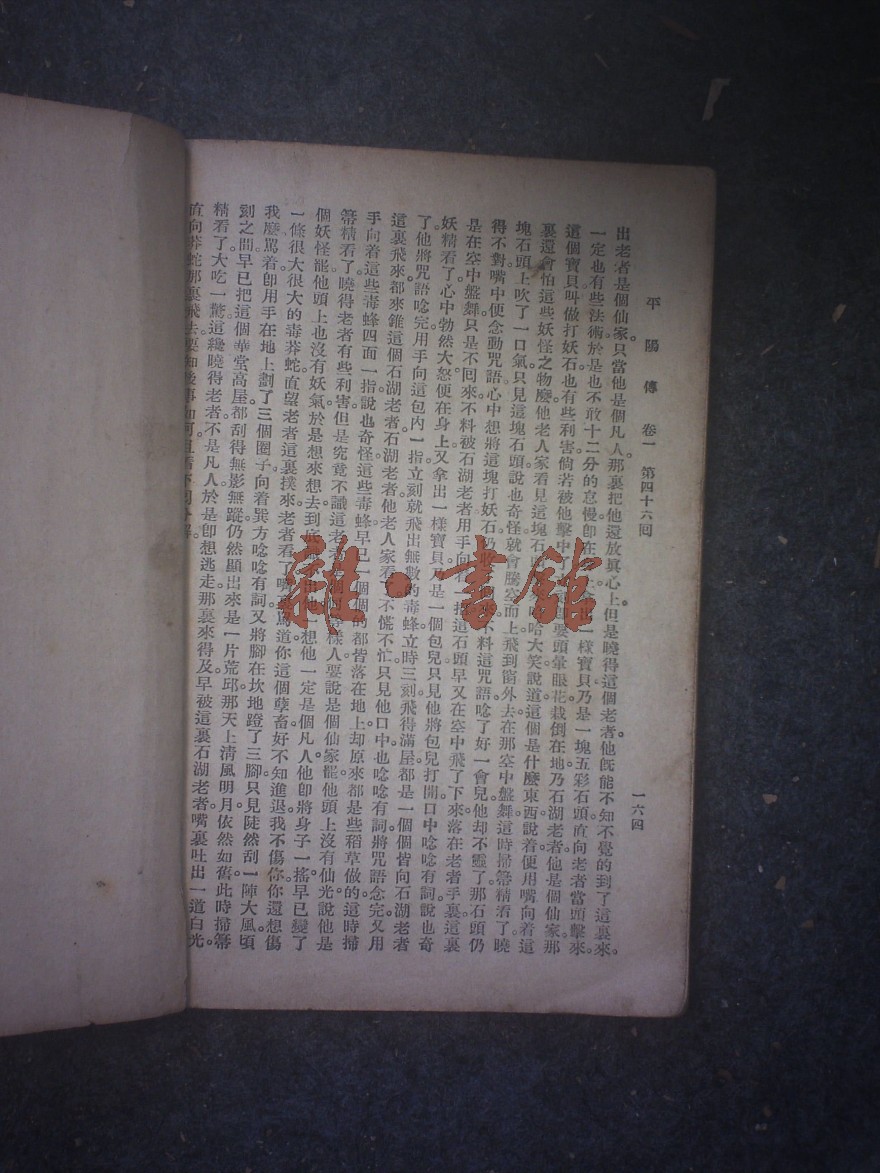 平陽傳 卷一 第四十六回 一六四
出老者是個仙家。只當他是個凡人。那裏把他還放眞心上。但是曉得這個老者。他旣能不知不覺的到了這裏來。
一定也有些法術。於是也不敢十二分的怠慢。卽在 一樣寶貝。乃是一塊五彩石頭。直向老者當頭擊來。
這個寶貝叫做打妖石。也有些利害。倘若被他擊中了 要頭暈眼花。栽倒在地。乃石湖老者。他是個仙家。那
裏還會怕這些妖怪之物。麼他老人家看見這塊石 哈大笑說道。這個是什麼東西。說着便用嘴向着這
塊石頭上吹了一口氣。只見這塊石頭說也奇怪。就會騰空而上。飛到窗外去。在那空中盤舞。這時掃箒精看了。曉
得不對。嘴中便念動咒語。心中想將這塊打妖石仍 不料這咒語唸了好一會兒。他却不靈了。那石頭仍
是在空中盤舞。只是不回來。不料被石湖老者用手向着 這石頭早又在空中飛了下來。落在老者手裏。這裏
妖精看了。心中勃然大怒。便在身上又拿出一樣寶貝。乃是一個包兒。只見他將包兒打開。口中唸唸有詞。說也奇
了。他將咒語唸完。用手向這包內一指。立刻就飛出無數的毒蜂。立時三刻飛得滿屋都是。一個個皆向石湖老者
這裏飛來。都來錐這個石湖老者。石湖老者他老人家看 不慌不忙。只見他口中也唸唸有詞。將咒語念完。又用
手向着這些毒蜂四面一指。說也奇怪。這些毒蜂早已一個個的都皆落在地上。却原來都是些稻草做的。這時掃
箒精看了。曉得老者有些利害。但是究竟不識這老者 樣人。要說是個仙家罷。他頭上沒有仙光。說他是
個妖怪罷。他頭上也沒有妖氣。於是想來想去。到底 想他一定是個凡人。他卽將身子一搖。早已變了
一條很大很大的毒莽蛇。直望老者這裏撲來。老者看了。嘴裏罵道。你這個孽畜。好不知進退。我不傷你。你還想傷
我麼。罵着卽用手在地上劃了三個圈子。向着巽方唸唸有詞。又將脚在坎地蹬了三脚。只見陡然刮一陣大風。頃
刻之間。早已把這個華堂高屋都刮得無影無蹤。仍然顯出來是一片荒邱。那天上淸風明月。依然如舊。此時掃箒
精看了。大吃一驚。這纔曉得老者不是凡人。於是卽想逃走。那裏來得及。早被這裏石湖老者嘴裏吐出一道白光。
直向莽蛇那裏飛去。要知後事如何。且看下回分解。
雜·書館